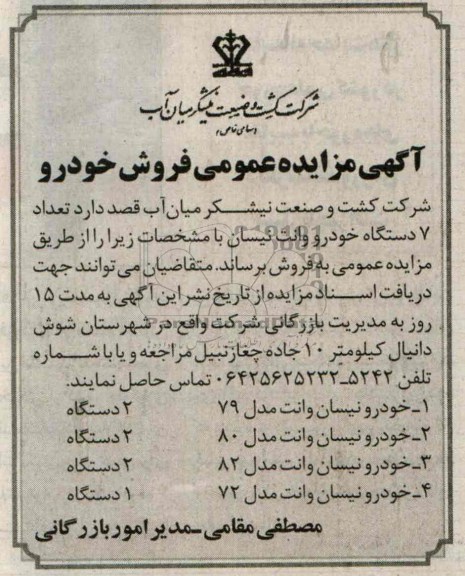 شرکت کشت و صنعت نیشکر میان‌آب
(سهامی خاص)
آگهی مزایده عمومی فروش خودرو
شرکت کشت و صنعت نیشکر میان‌آب قصد دارد تعداد
۷ دستگاه خودرو وانت نیسان با مشخصات زیر را از طریق
مزایده عمومی به فروش برساند. متقاضیان می‌توانند جهت
دریافت اسناد مزایده از تاریخ نشر این آگهی به مدت ۱۵
روز به مدیریت بازرگانی شرکت واقع در شهرستان شوش
دانیال کیلومتر ۱۰ جاده چغازنبیل مراجعه و یا با شماره
تلفن ۵۲۴۲ـ۰۶۴۲۵۶۲۵۲۳۲ تماس حاصل نمایند.
۱ـ خودرو نیسان وانت مدل ۷۹ ۲ دستگاه
۲ـ خودرو نیسان وانت مدل ۸۰ ۲ دستگاه
۳ـ خودرو نیسان وانت مدل ۸۲ ۲ دستگاه
۴ـ خودرو نیسان وانت مدل ۷۲ ۱ دستگاه
مصطفی مقامی ـ مدیر امور بازرگانی